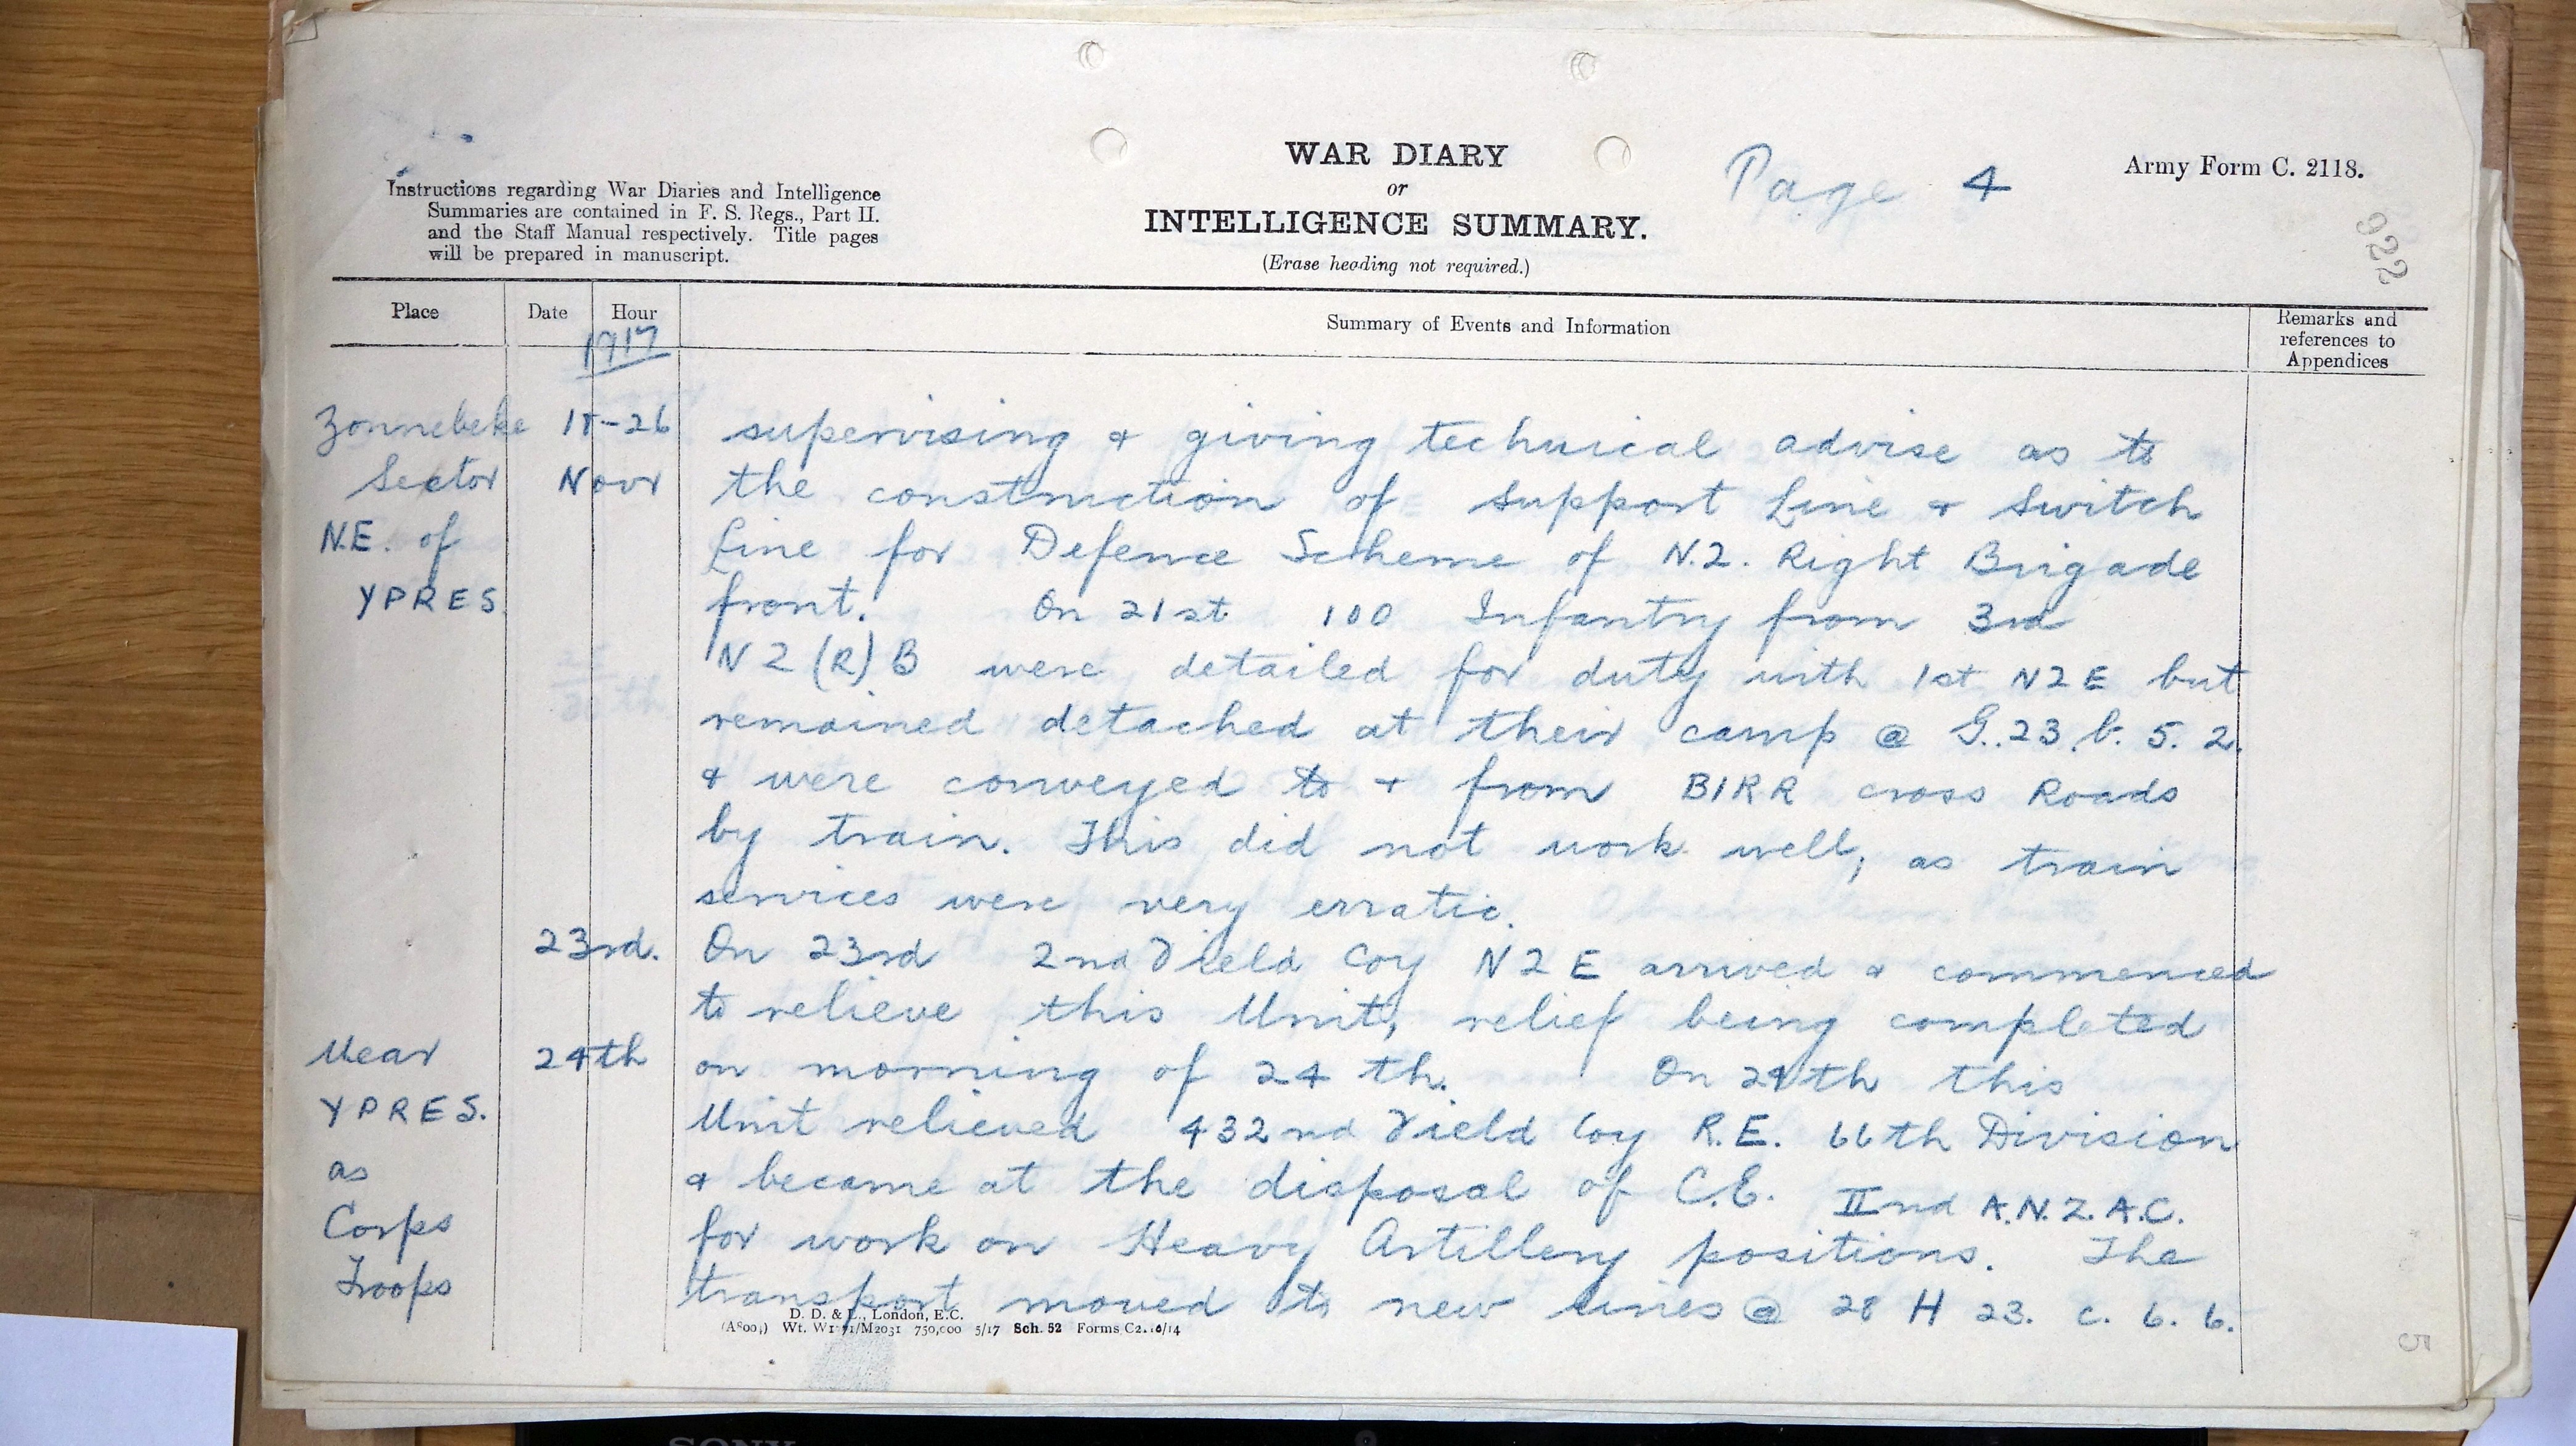 WAR DIARY
or
INTELLIGENCE SUMMARY.
(Erase heading not required.)
Page 4
Army Form C. 2118.
922
Instructions regarding War Diaries and Intelligence
Summaries are contained in F. S. Regs., Part II.
and the Staff Manual respectively. Title pages
will be prepared in manuscript.
Place Date Hour Summary of Events and Information Remarks and
references to
Appendices
1917
Zonnebeke 18-26 supervising & giving technical advise as to
Sector Novr the construction of Support Line & Switch
N.E. of Line for Defence Scheme of N.Z. Right Brigade
YPRES front. On 21st 100 Infantry from 3rd
NZ (R) B were detailed for duty with 1st NZE but
remained detached at their camp @ G.23.b.5.2.
& were conveyed to & from BIRR cross Roads
by train. This did not work well, as train
services were very erratic.
23rd. On 23rd 2nd Field Coy NZE arrived & commenced
to relieve this Unit, relief being completed
Near 24th on morning of 24th. On 24th this
YPRES. Unit relieved 432nd Field Coy R.E. 66th Division
as & became at the disposal of C.E. IInd A.N.Z.A.C.
Corps for work on Heavy Artillery positions. The
Troops transport moved to new lines @ 28 H 23. c. 6. 6.
D. D. & L., London, E.C.
750,000 5/17 Sch. 52 Forms
5
SONY